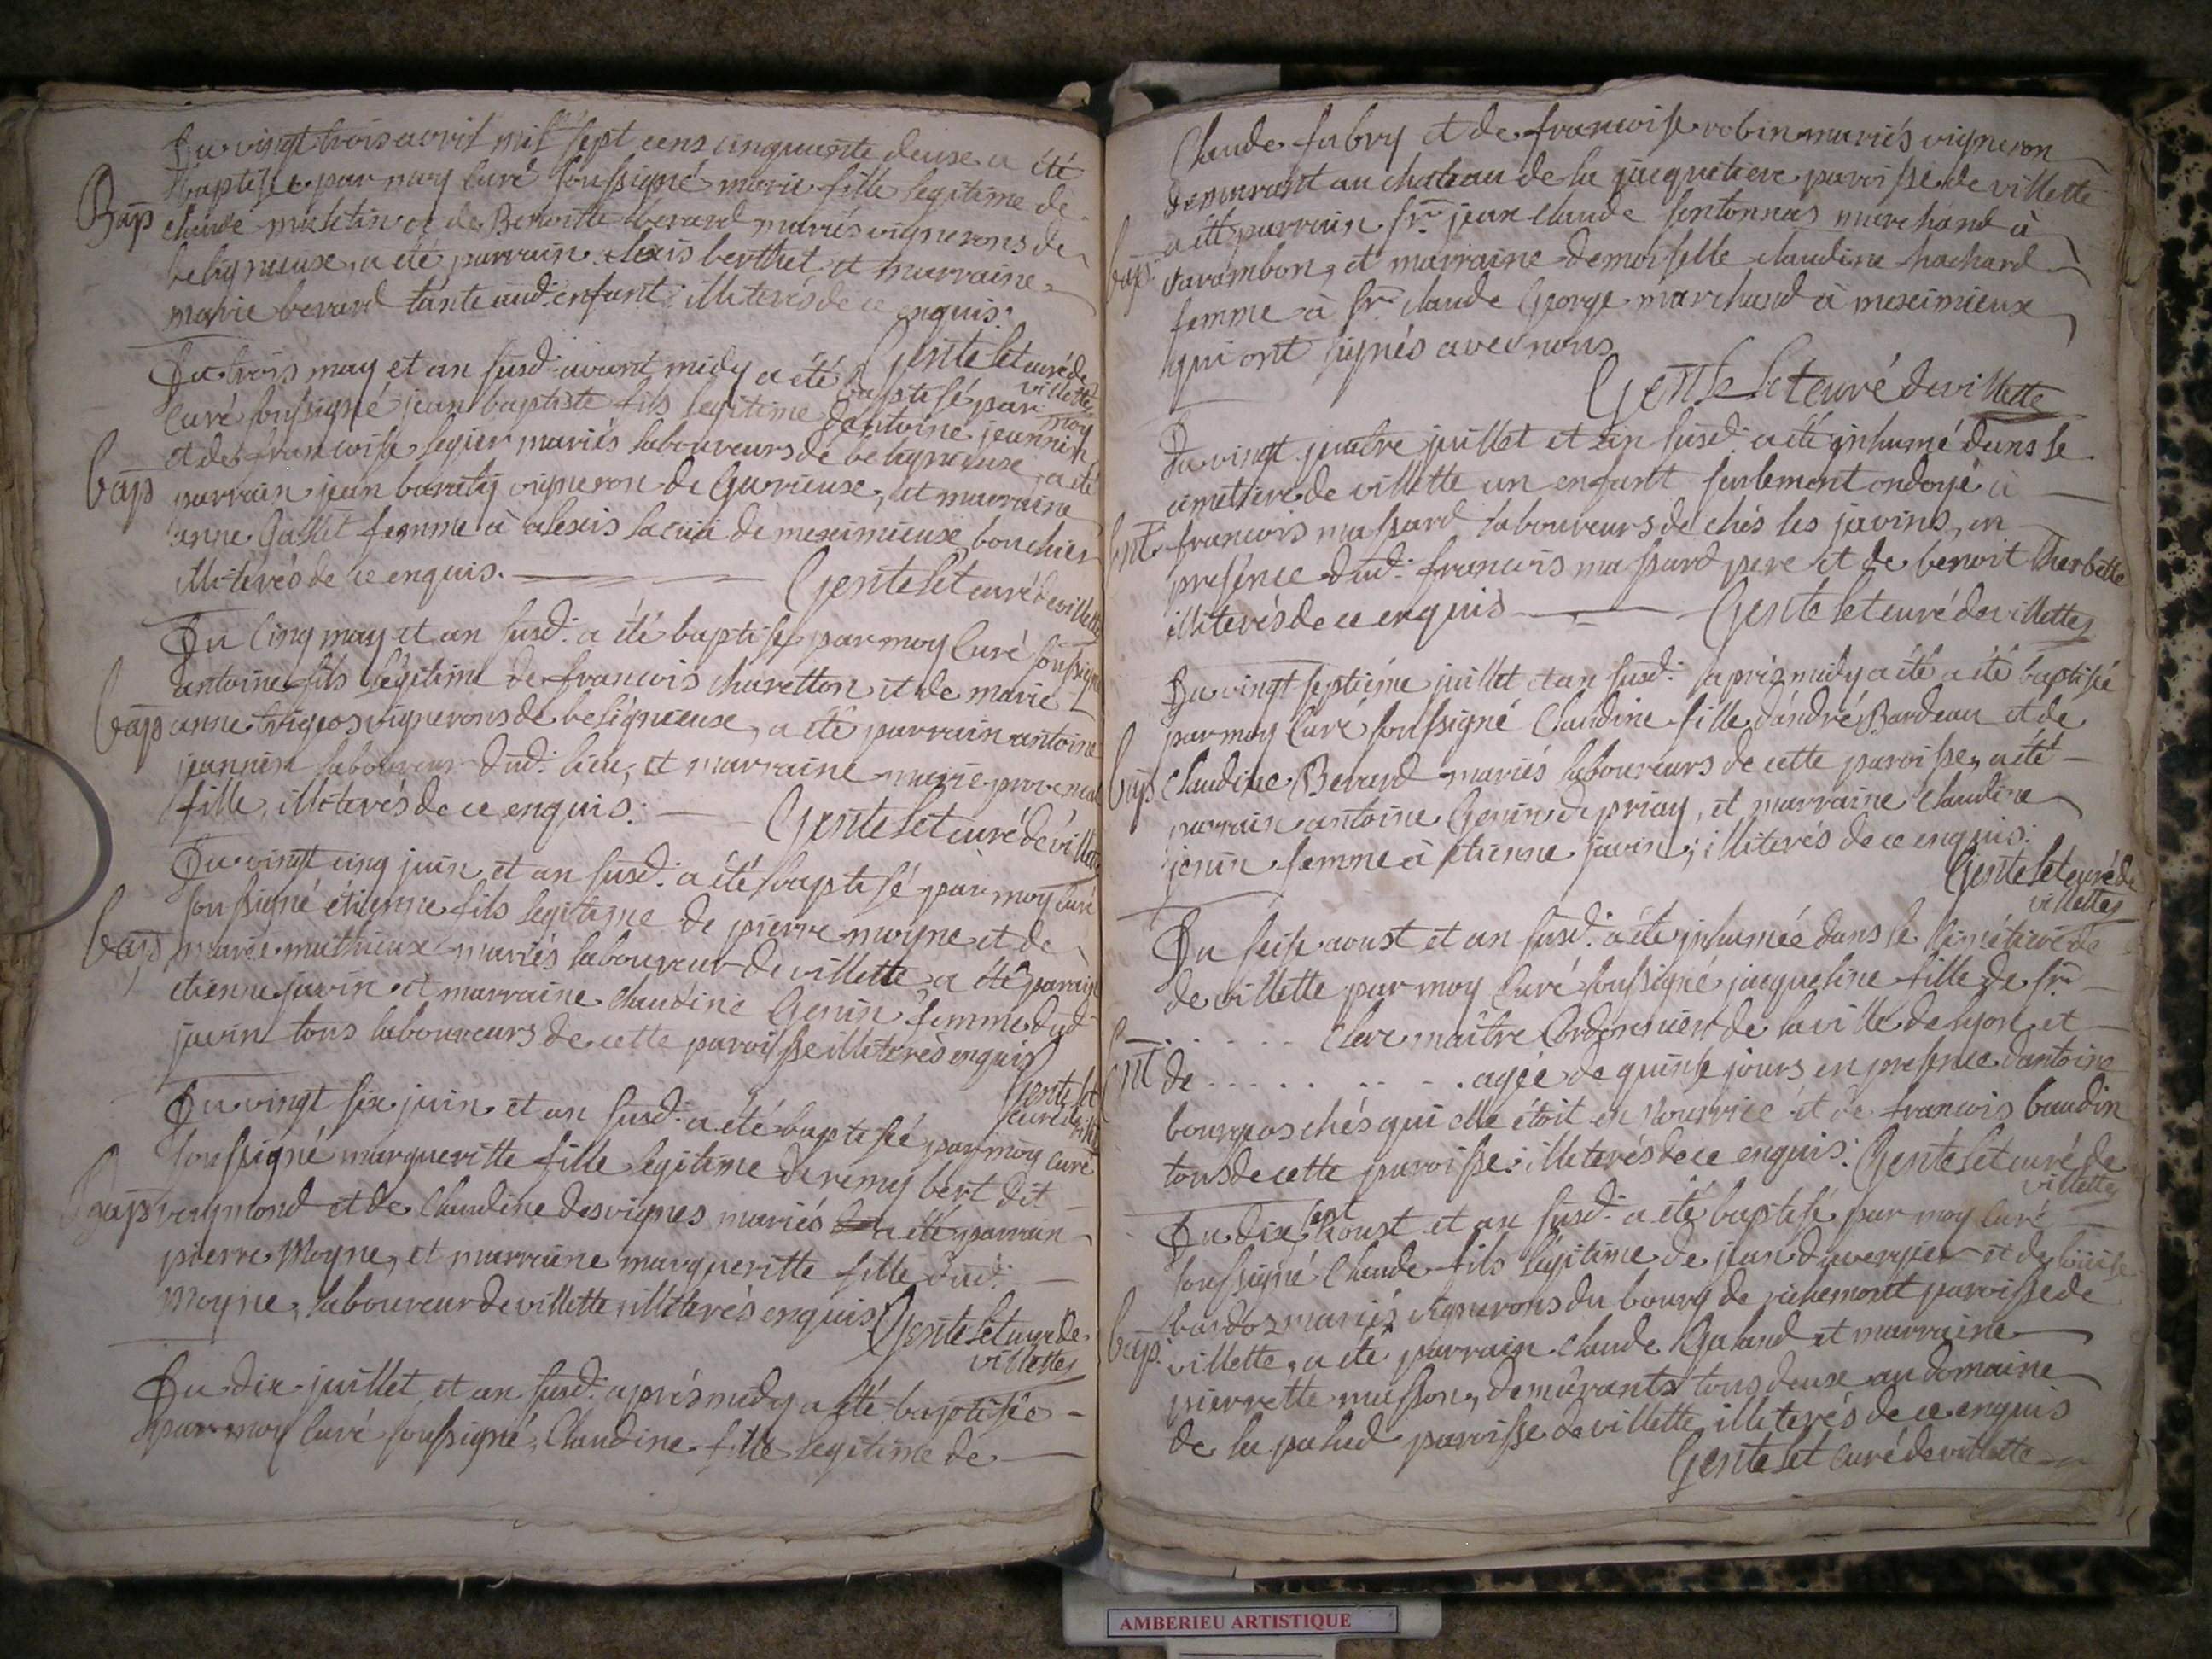 Du vingt trois avril mil sept cens cinquante deux a été
baptisée par moy Curé soussigné marie fille legitime de
Bap claude micletin et de Benoitte berard mariés vignerons de
beligneux, a été parrain alexis berthet et marraine
marie berard tante dud. enfant illiterés de ce enquis.
Genteset curé de villette
Du trois may et an susd. avant midy a été baptisé par moy
Curé soussigné jean baptiste fils legitime dantoine jeannin
et de francoise legier mariés laboureurs de beligneuse, a été
bap parrain jean baratin vigneron de Gurieuse, et marraine
anne Gallet femme à alexis de meximieux boucher
illiterés de ce enquis. Genteset curé de villette
Du Cinq may et an susd. a été baptisé par moy Curé soussigné
antoine fils légitime de francois charetton et de marie
bap anne trigeos vignerons de beligneuse, a été parrain antoine
jeannin laboureur dud. lieu, et marraine marie provencal
fille, illiterés de ce enquis. Genteset curé de villette
Du vingt cinq juin et an susd. a été baptisé par moy curé
soussigné étienne fils legitime de pierre moyne et de
bap marie mathieux mariés laboureur de villette a été parrain
etienne javin et marraine Claudine Genin femme dud.
javin tous laboureurs de cette paroisse illiterés enquis
Genteset curé de villette
Du vingt six juin et an susd. a été baptisé par moy curé
soussigné margueritte fille legitime de remy bert dit
bap raymond et de Claudine desvignes mariés a été parrain
pierre Moyne, et marraine margueritte fille dud.
Moyne, laboureur de villette illiterés enquis Genteset curé de
villette
Du dix juillet et an susd. aprés midy a été baptisée
par moy Curé soussigné, Claudine fille legitime de
Claude fabry et de francoise robin mariés vigneron
demeurant au chateau de la jacquetiere paroisse de villette
a été parrain sr. jean claude fontonnas marchand à
bap. varambon, et marraine demoiselle claudine hachard
femme à sr. claude George marchand à meximieux
qui ont signés avec nous
Genteset curé de villette
Du vingt quatre juillet et an susd. a été inhumé dans le
cimetiere de villette un enfant seulement ondoyé à
Ent. francois massard laboureurs de chés les javins, en
presence dud. francois massard pere et de benoit therbette
illiterés de ce enquis Genteset curé de villette
Du vingt septiéme juillet et an susd. aprés midy a été a été baptisé
par moy Curé soussigné Claudine fille dandré Bardeau et de
bap Claudine Berard mariés laboureurs de cette paroisse, a été
parrain antoine Genin de priay, et marraine Claudine
jenin femme à étienne javin; illiterés de ce enquis.
Genteset curé de
villette
Du seise aoust et an susd. a été inhumée dans le Cimétiere de
de villette par moy Curé soussigné jacqueline fille de sr.
. . . . . . Clere maître Cordonnier de la ville de lyon et
Ent de . . . . . . . . agée de quinse jours en presence dantoine
bourgos chés qui elle étoit en Nourrice et de francois baudin
tous de cette paroisse. illiterés de ce enquis. Genteset curé de
villette
Du dix sept aoust et an susd. a été baptisé par moy Curé
soussigné Claude fils légitime de jean duvergier et de loüise
bardoz mariés vignerons du bourg de richemont paroisse de
bap. villette, a été parrain Claude Galand et marraine
pierrette musson, demeurants tous deux au domaine
de la palud paroisse de villette illiterés de ce enquis
Genteset Curé de villette
AMBERIEU ARTISTIQUE